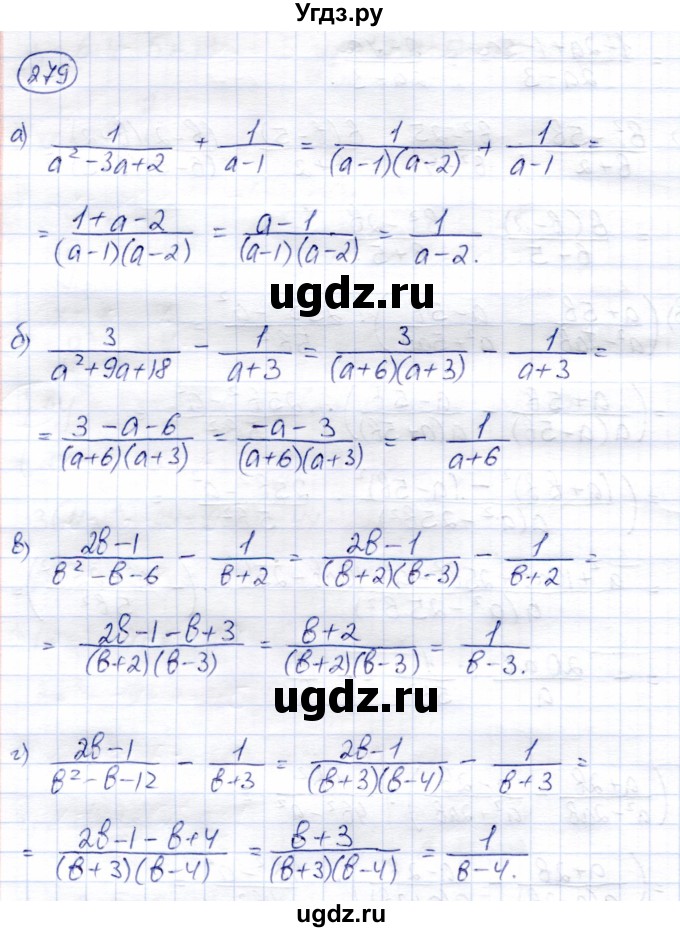 Угдз.ру
279
а) 1/(a² - 3a + 2) + 1/(a - 1) = 1/((a - 1)(a - 2)) + 1/(a - 1) =
= (1 + a - 2)/((a - 1)(a - 2)) = (a - 1)/((a - 1)(a - 2)) = 1/(a - 2).
ugdz.ru
б) 3/(a² + 9a + 18) - 1/(a + 3) = 3/((a + 6)(a + 3)) - 1/(a + 3) =
= (3 - a - 6)/((a + 6)(a + 3)) = (-a - 3)/((a + 6)(a + 3)) = - 1/(a + 6)
в) (2b - 1)/(b² - b - 6) - 1/(b + 2) = (2b - 1)/((b + 2)(b - 3)) - 1/(b + 2) =
= (2b - 1 - b + 3)/((b + 2)(b - 3)) = (b + 2)/((b + 2)(b - 3)) = 1/(b - 3).
ugdz.ru
г) (2b - 1)/(b² - b - 12) - 1/(b + 3) = (2b - 1)/((b + 3)(b - 4)) - 1/(b + 3) =
= (2b - 1 - b + 4)/((b + 3)(b - 4)) = (b + 3)/((b + 3)(b - 4)) = 1/(b - 4).
ugdz.ru